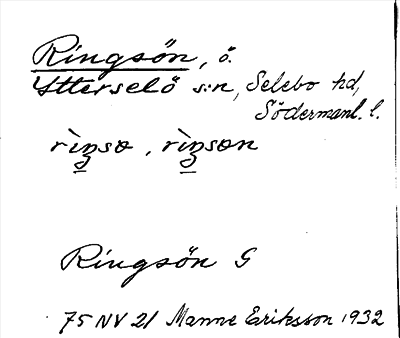 Ringsön, ö.
Ytterselö s:n, Selebo hd,
Södermanl. l.
rìŋsɷ, rìŋsɷn
Ringsön G
75 NV 21 Manne Eriksson 1932